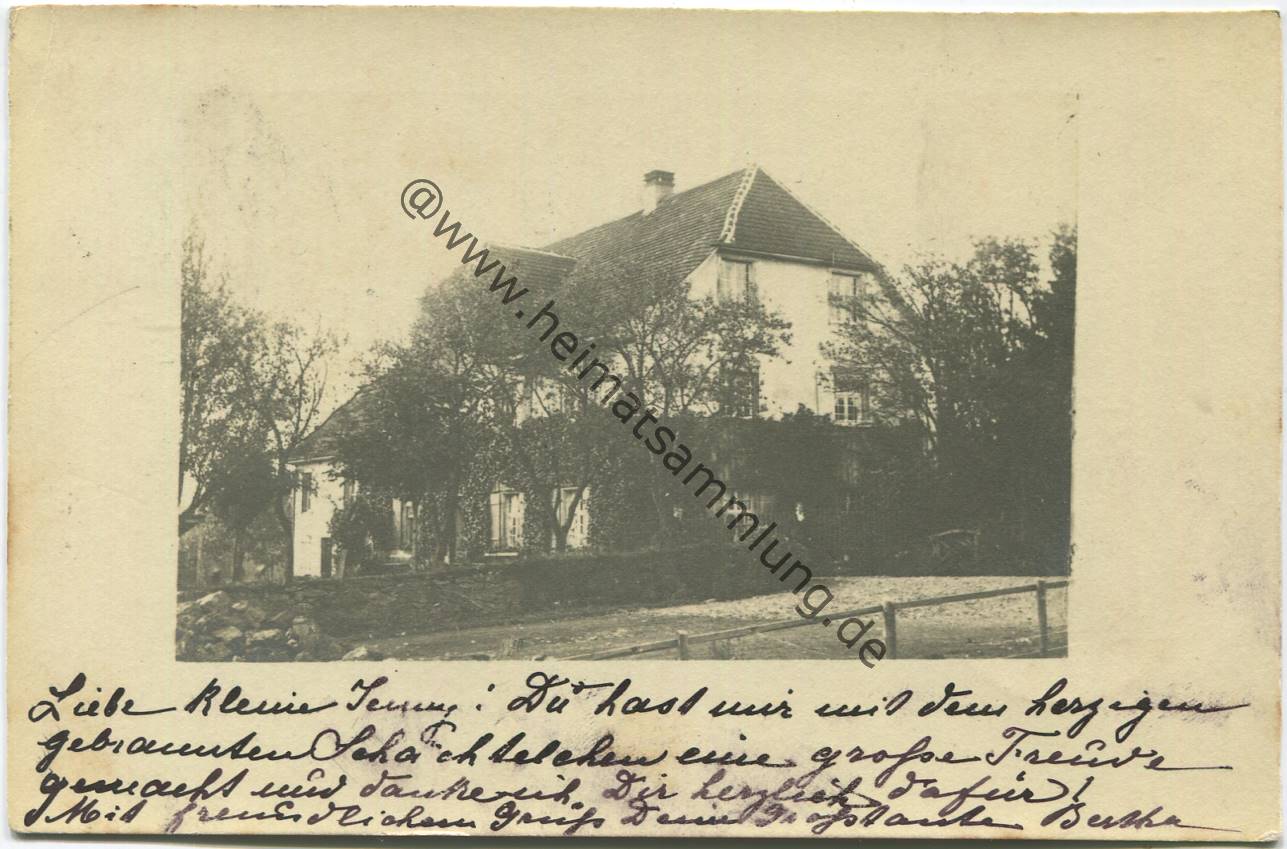 @www.heimatsammlung.de
Liebe kleine Jenny! Du hast mir mit dem herzigen
gebrannten Schächtelchen eine große Freude
gemacht und danke ich Dir herzlich dafür!
Mit freundlichem Gruß Deine Großtante Bertha